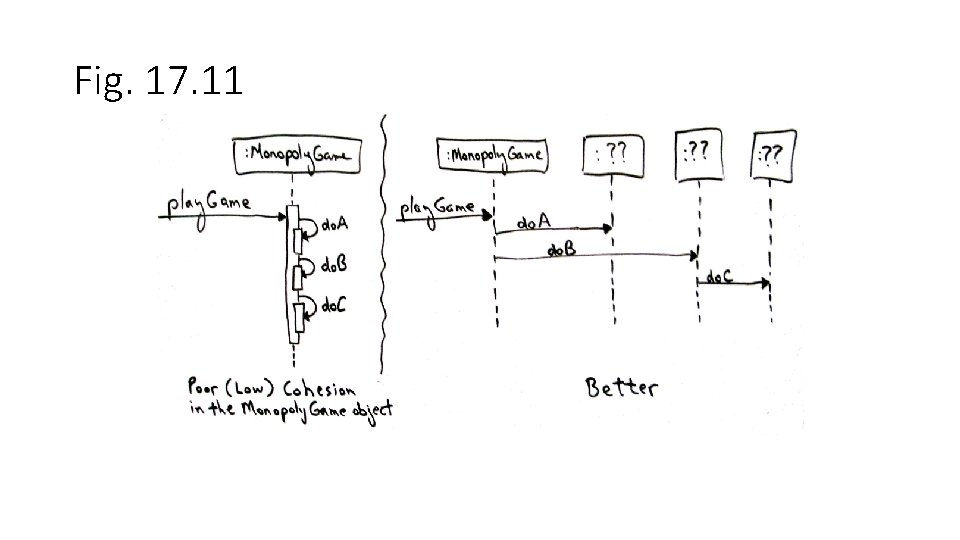 Fig. 17.11
:MonopolyGame
playGame
doA
doB
doC
Poor (Low) Cohesion
in the MonopolyGame object
:MonopolyGame
: ??
:??
:??
playGame
doA
doB
doC
Better